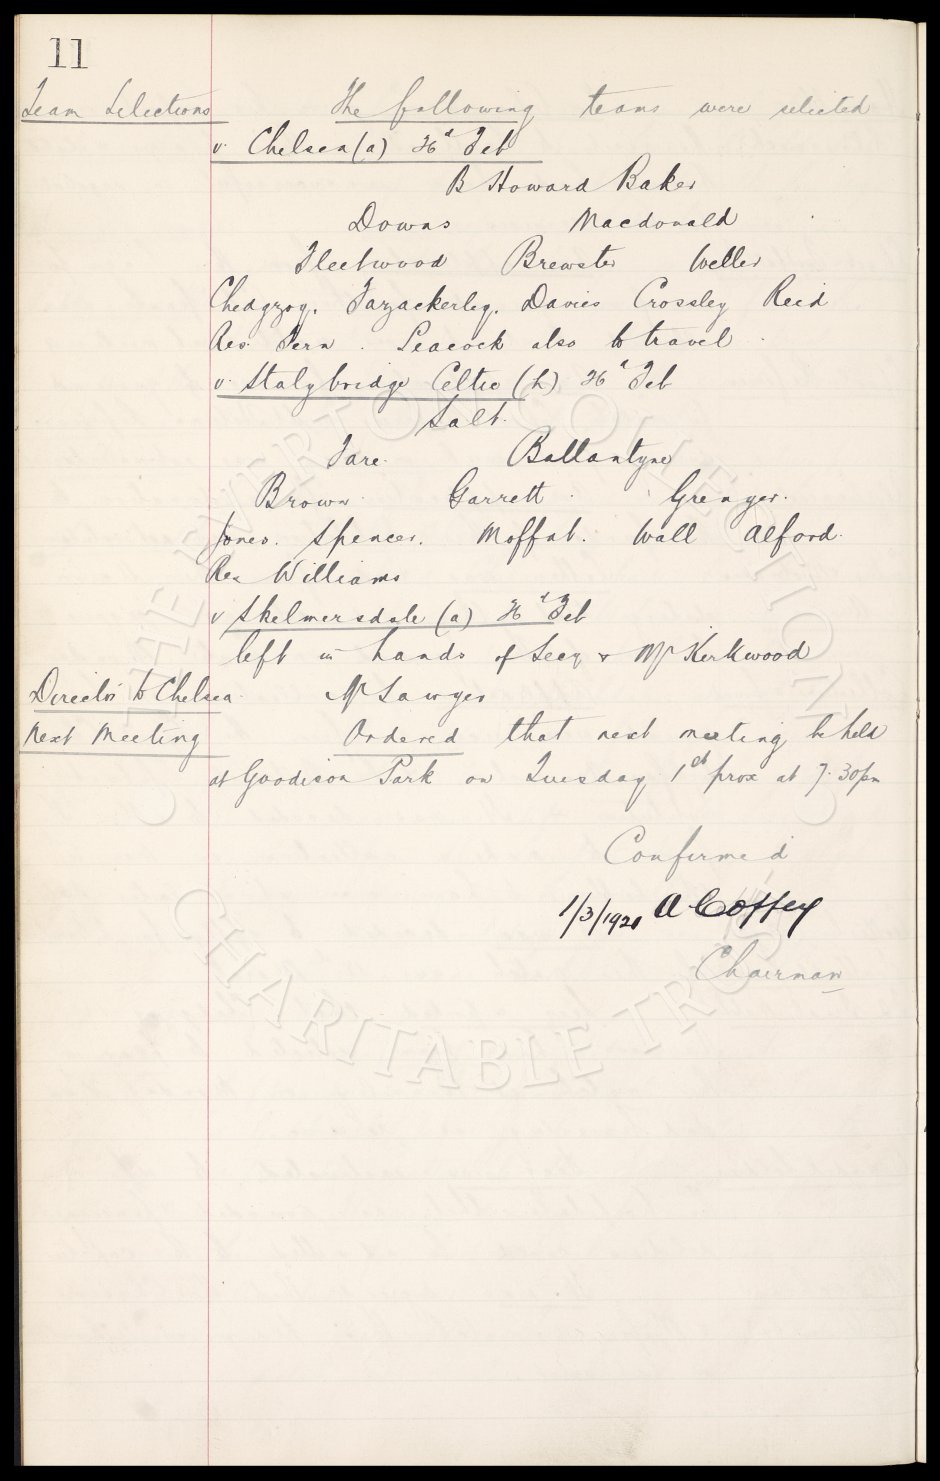 11
Team Selections The following teams were selected
v. Chelsea (a) 26th Feb
B Howard Baker
Downs Macdonald
Fleetwood Brewster Weller
Chedgzoy. Fazackerley. Davies Crossley Reid
Res. Fern. Peacock also to travel.
v. Stalybridge Celtic (h) 26th Feb
Salt.
Fare. Ballantyne
Brown. Garrett. Grenyer.
Jones. Spencer. Moffat. Wall Alford.
Res Williams
v Skelmersdale (a) 26th Feb
left in hands of Secy & Mr Kirkwood
Director to Chelsea. Mr Sawyer
Next Meeting Ordered that next meeting be held
at Goodison Park on Tuesday 1st prox at 7.30pm
Confirmed
1/3/1921 A Coffey
Chairman
THE EVERTON COLLECTION
CHARITABLE TRUST